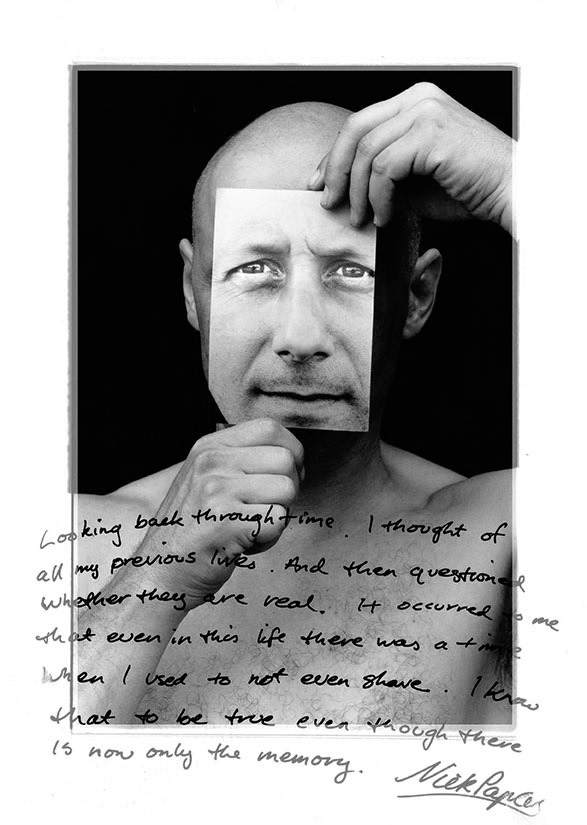 Looking back through time. I thought of
all my previous lives. And then questioned
whether they are real. It occurred to me
that even in this life there was a time
when I used to not even shave. I know
that to be true even though there
is now only the memory.
Nick